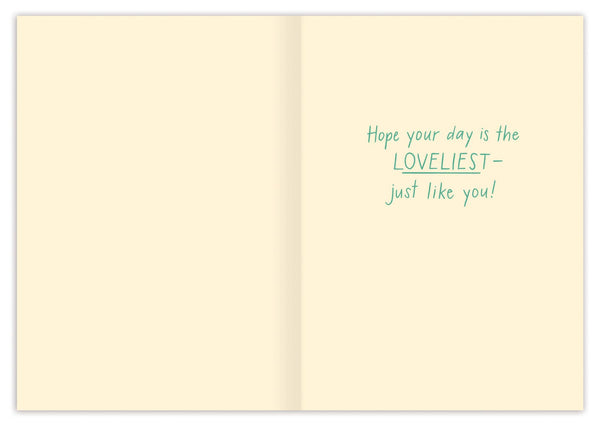 Hope your day is the
LOVELIEST–
just like you!